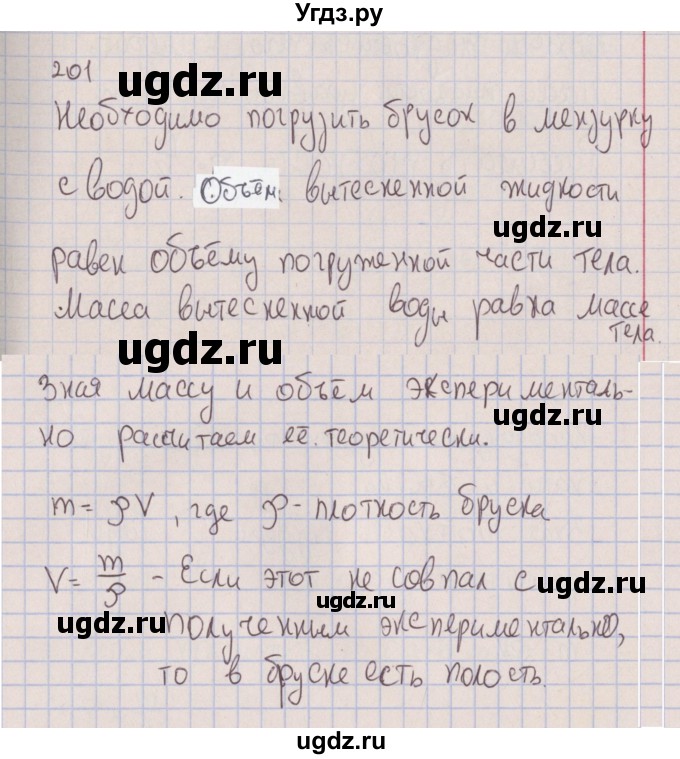 Угдз.ру
201
ugdz.ru
Необходимо погрузить брусок в мензурку
с водой. Объём вытесненной жидкости
ugdz.ru
равен объёму погруженной части тела.
Масса вытесненной воды равна массе
тела.
ugdz.ru
Зная массу и объём эксперименталь-
ugdz.ru
но расчитаем её теоретически.
m = ρV, где ρ - плотность бруска
V = m/ρ - Если этот не совпал с
ugdz.ru
ugdz.ru
полученным экспериментально,
то в бруске есть полость.
ugdz.ru